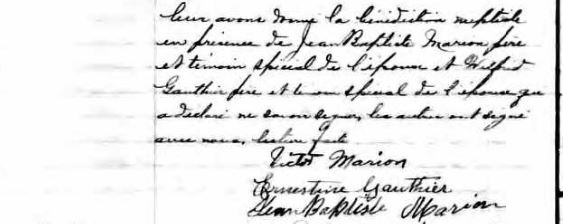 leur avons donné la bénédiction nuptiale
en présence de Jean Baptiste Marion père
et témoin spécial de l'époux et Wilfrid
Gauthier père et témoin spécial de l'épouse qui
a déclaré ne savoir signer, les autres ont signé
avec nous, lecture faite
Victor Marion
Ernestine Gauthier
Jean Baptiste Marion